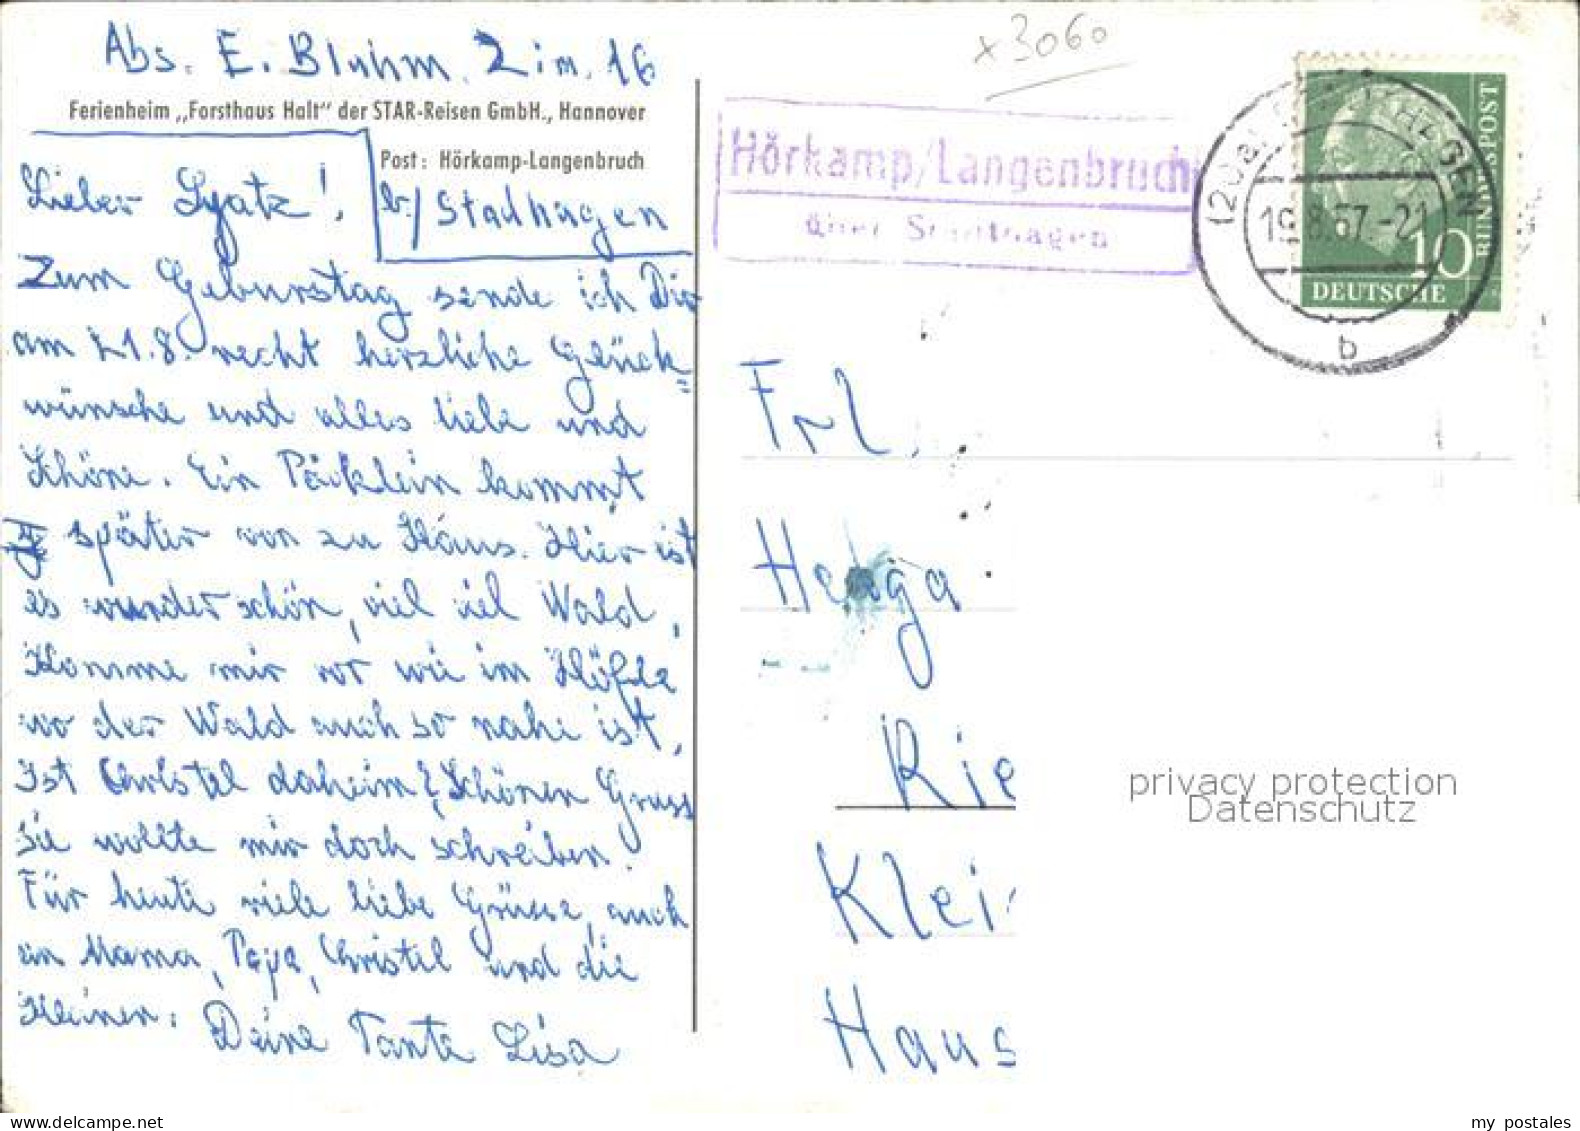 Abs. E. Bluhm. Zim. 16
Ferienheim „Forsthaus Halt" der STAR-Reisen GmbH., Hannover
Post: Hörkamp-Langenbruch
b./ Stadhagen
Lieber Spatz!
Zum Geburstag sende ich Dir
am 21.8. recht herzliche Glück=
wünsche und alles liebe und
Schöne. Ein Päcklein kommt
später von zu Haus. Hier ist
es wunderschön, viel viel Wald,
Komme mir vor wie im
wo der Wald auch so nahe ist.
Ist Christel daheim? Schönen Gruss
sie wollte mir doch schreiben.
Für heute viele liebe Grüsse, auch
an Mama, Papa, Christel und die
Kleinen. Deine Tante Lisa
x3060
Hörkamp/Langenbruch
über Stadthagen
(20a)
19.8.57-21
b
10
BUNDESPOST
DEUTSCHE
Frl.
Helga
Rie
Klei
Haus
privacy protection
Datenschutz
my postales